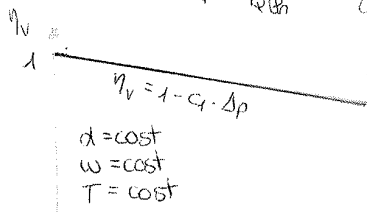 ηv
1
ηv = 1 - c1 · Δp
α = cost
ω = cost
T = cost